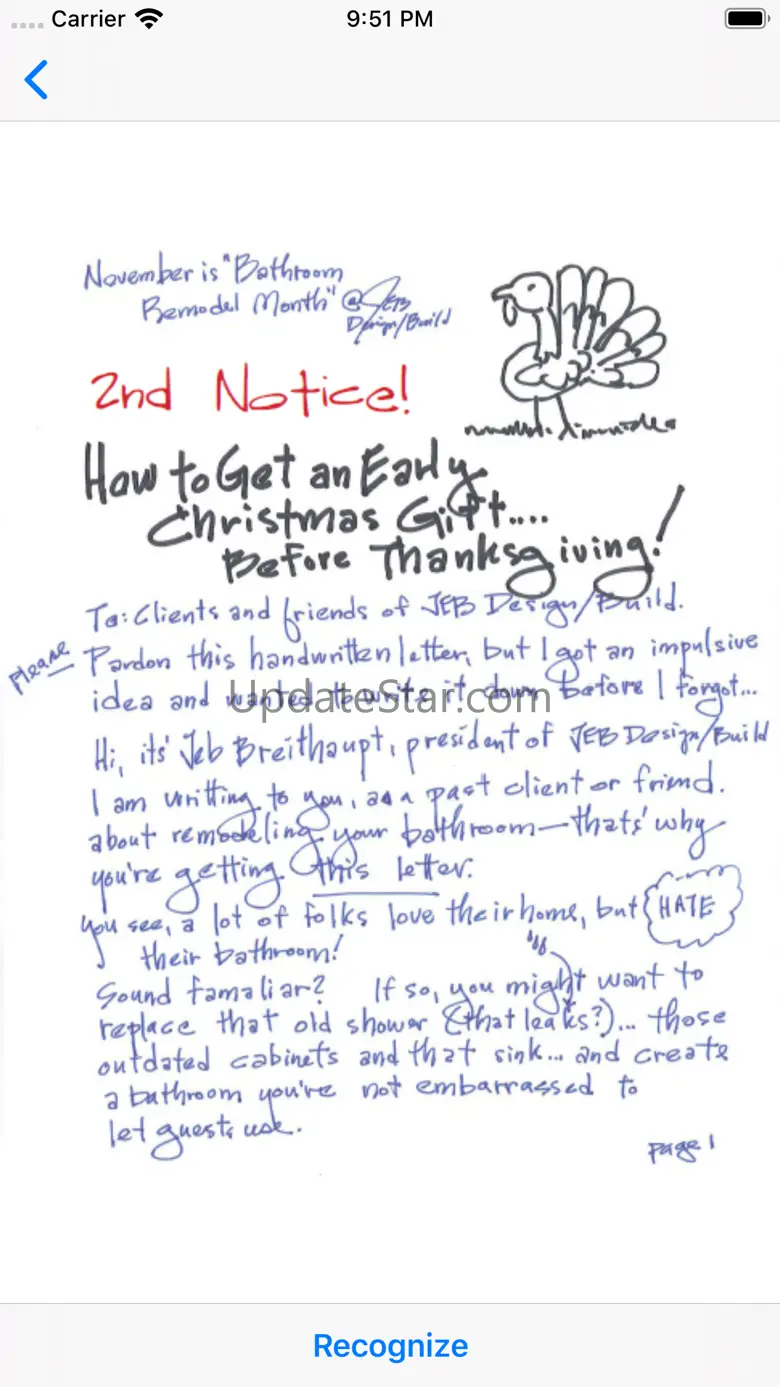 Carrier 9:51 PM
November is "Bathroom
Remodel Month" @JEB
Design/Build
2nd Notice!
How to Get an Early
Christmas Gift....
Before Thanksgiving!
To: Clients and friends of JEB Design/Build.
Please Pardon this handwritten letter, but I got an impulsive
idea and wanted to write it down before I forgot...
UpdateStar.com
Hi, its' Jeb Breithaupt, president of JEB Design/Build
I am writting to you, as a past client or friend.
about remodeling your bathroom—thats' why
you're getting this letter.
You see, a lot of folks love their home, but HATE
their bathroom!
Sound famaliar? If so, you might want to
replace that old shower (that leaks?)... those
outdated cabinets and that sink... and create
a bathroom you're not embarrassed to
let guests use.
page 1
Recognize